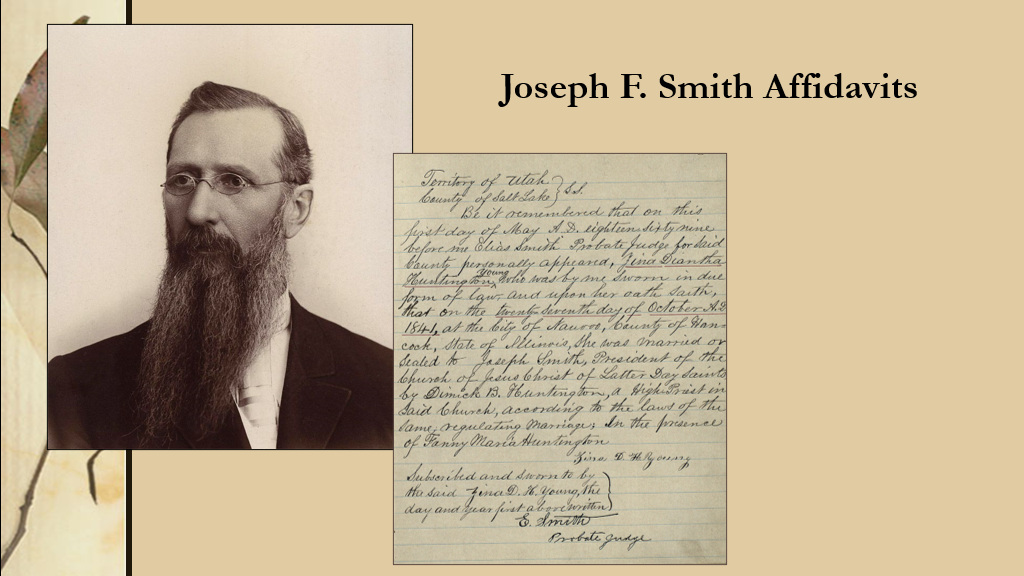 Joseph F. Smith Affidavits
Territory of Utah } S.S.
County of Salt Lake
Be it remembered that on this
first day of May A.D. eighteen sixty nine
before me Elias Smith Probate Judge for said
County personally appeared, Zina Diantha
Huntington, Young who was by me sworn in due
form of law and upon her oath saith,
that on the twenty-seventh day of October A.D
1841, at the City of Nauvoo, County of Han-
cock, State of Illinois, She was married or
Sealed to Joseph Smith, President of the
Church of Jesus Christ of Latter Day Saints
by Dimick B. Huntington, a High Priest in
said Church, according to the laws of the
same, regulating Marriage; In the presence
of Fanny Maria Huntington
Zina D. H. Young
Subscribed and sworn to by
the said Zina D. H. Young, the
day and year first above written
E. Smith
Probate Judge